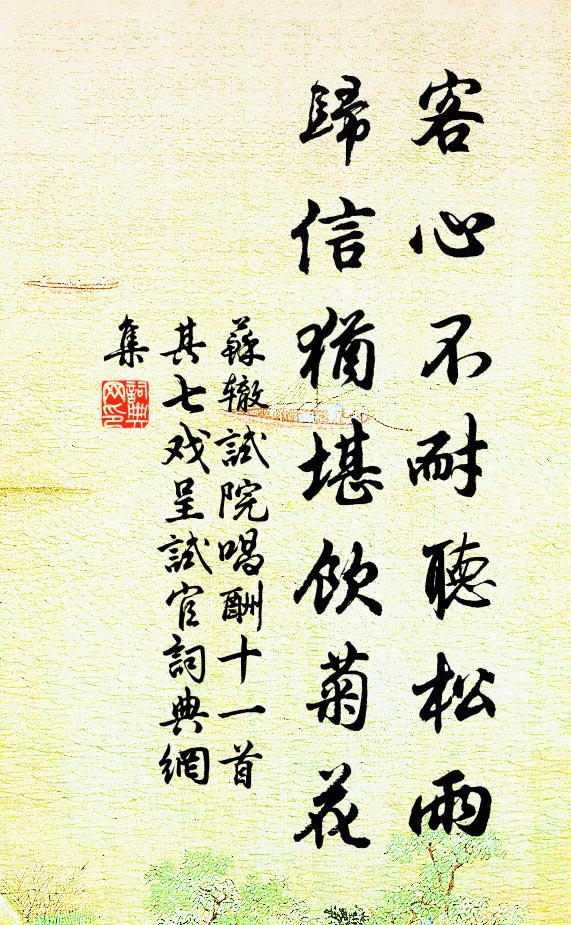 客心不耐聽松雨
歸信猶堪飲菊花
蘇轍試院唱酬十一首
其七戏呈試官詞典網
集
詞典
网印